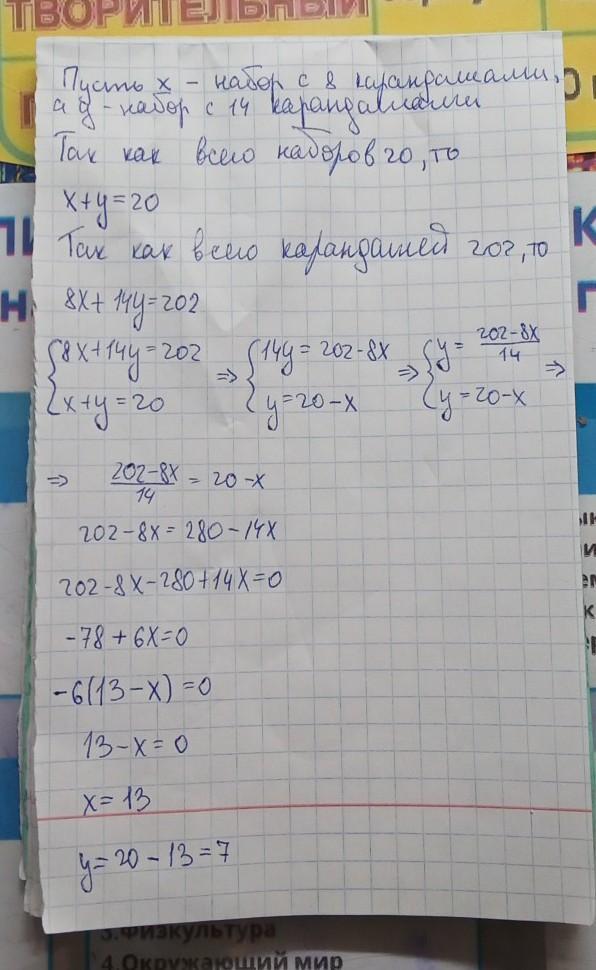 ТВОРИТЕЛЬНЫЙ
Пусть x - набор с 8 карандашами,
а y - набор с 14 карандашами
Так как всего наборов 20, то
x+y=20
Так как всего карандашей 202, то
8x+14y=202
{8x+14y=202 ⇒ {14y=202-8x ⇒ {y=(202-8x)/14 ⇒
{x+y=20 {y=20-x {y=20-x
⇒ (202-8x)/14 = 20-x
202-8x=280-14x
202-8x-280+14x=0
-78+6x=0
-6(13-x)=0
13-x=0
x=13
y=20-13=7
3.Физкультура
4.Окружающий мир